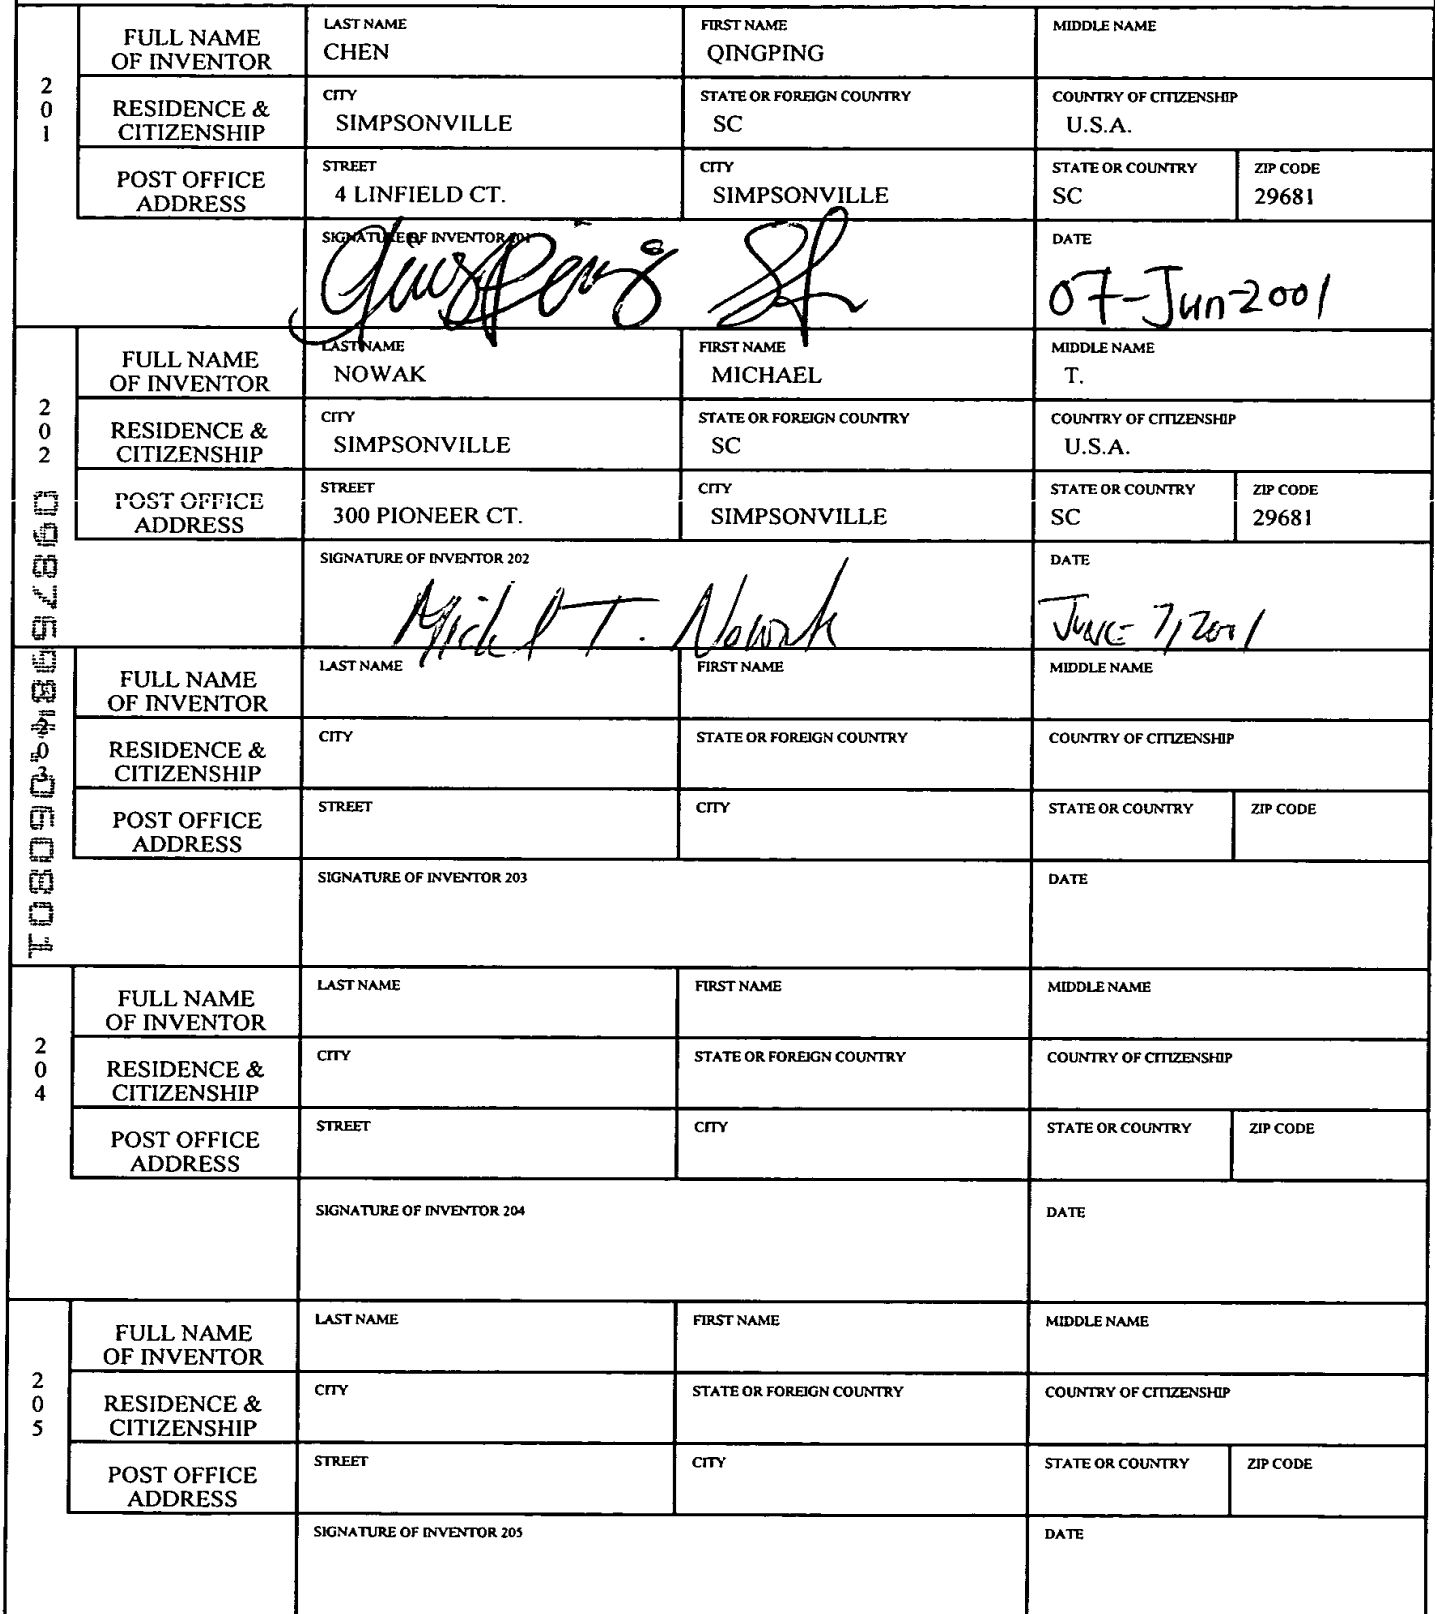 FULL NAME OF INVENTOR
LAST NAME
CHEN
FIRST NAME
QINGPING
MIDDLE NAME
201
RESIDENCE & CITIZENSHIP
CITY
SIMPSONVILLE
STATE OR FOREIGN COUNTRY
SC
COUNTRY OF CITIZENSHIP
U.S.A.
POST OFFICE ADDRESS
STREET
4 LINFIELD CT.
CITY
SIMPSONVILLE
STATE OR COUNTRY
SC
ZIP CODE
29681
SIGNATURE OF INVENTOR 201
DATE
07-Jun-2001
FULL NAME OF INVENTOR
LAST NAME
NOWAK
FIRST NAME
MICHAEL
MIDDLE NAME
T.
202
RESIDENCE & CITIZENSHIP
CITY
SIMPSONVILLE
STATE OR FOREIGN COUNTRY
SC
COUNTRY OF CITIZENSHIP
U.S.A.
POST OFFICE ADDRESS
STREET
300 PIONEER CT.
CITY
SIMPSONVILLE
STATE OR COUNTRY
SC
ZIP CODE
29681
SIGNATURE OF INVENTOR 202
Michael T. Nowak
DATE
JUNE 7, 2001
FULL NAME OF INVENTOR
LAST NAME
FIRST NAME
MIDDLE NAME
203
RESIDENCE & CITIZENSHIP
CITY
STATE OR FOREIGN COUNTRY
COUNTRY OF CITIZENSHIP
POST OFFICE ADDRESS
STREET
CITY
STATE OR COUNTRY
ZIP CODE
SIGNATURE OF INVENTOR 203
DATE
FULL NAME OF INVENTOR
LAST NAME
FIRST NAME
MIDDLE NAME
204
RESIDENCE & CITIZENSHIP
CITY
STATE OR FOREIGN COUNTRY
COUNTRY OF CITIZENSHIP
POST OFFICE ADDRESS
STREET
CITY
STATE OR COUNTRY
ZIP CODE
SIGNATURE OF INVENTOR 204
DATE
FULL NAME OF INVENTOR
LAST NAME
FIRST NAME
MIDDLE NAME
205
RESIDENCE & CITIZENSHIP
CITY
STATE OR FOREIGN COUNTRY
COUNTRY OF CITIZENSHIP
POST OFFICE ADDRESS
STREET
CITY
STATE OR COUNTRY
ZIP CODE
SIGNATURE OF INVENTOR 205
DATE